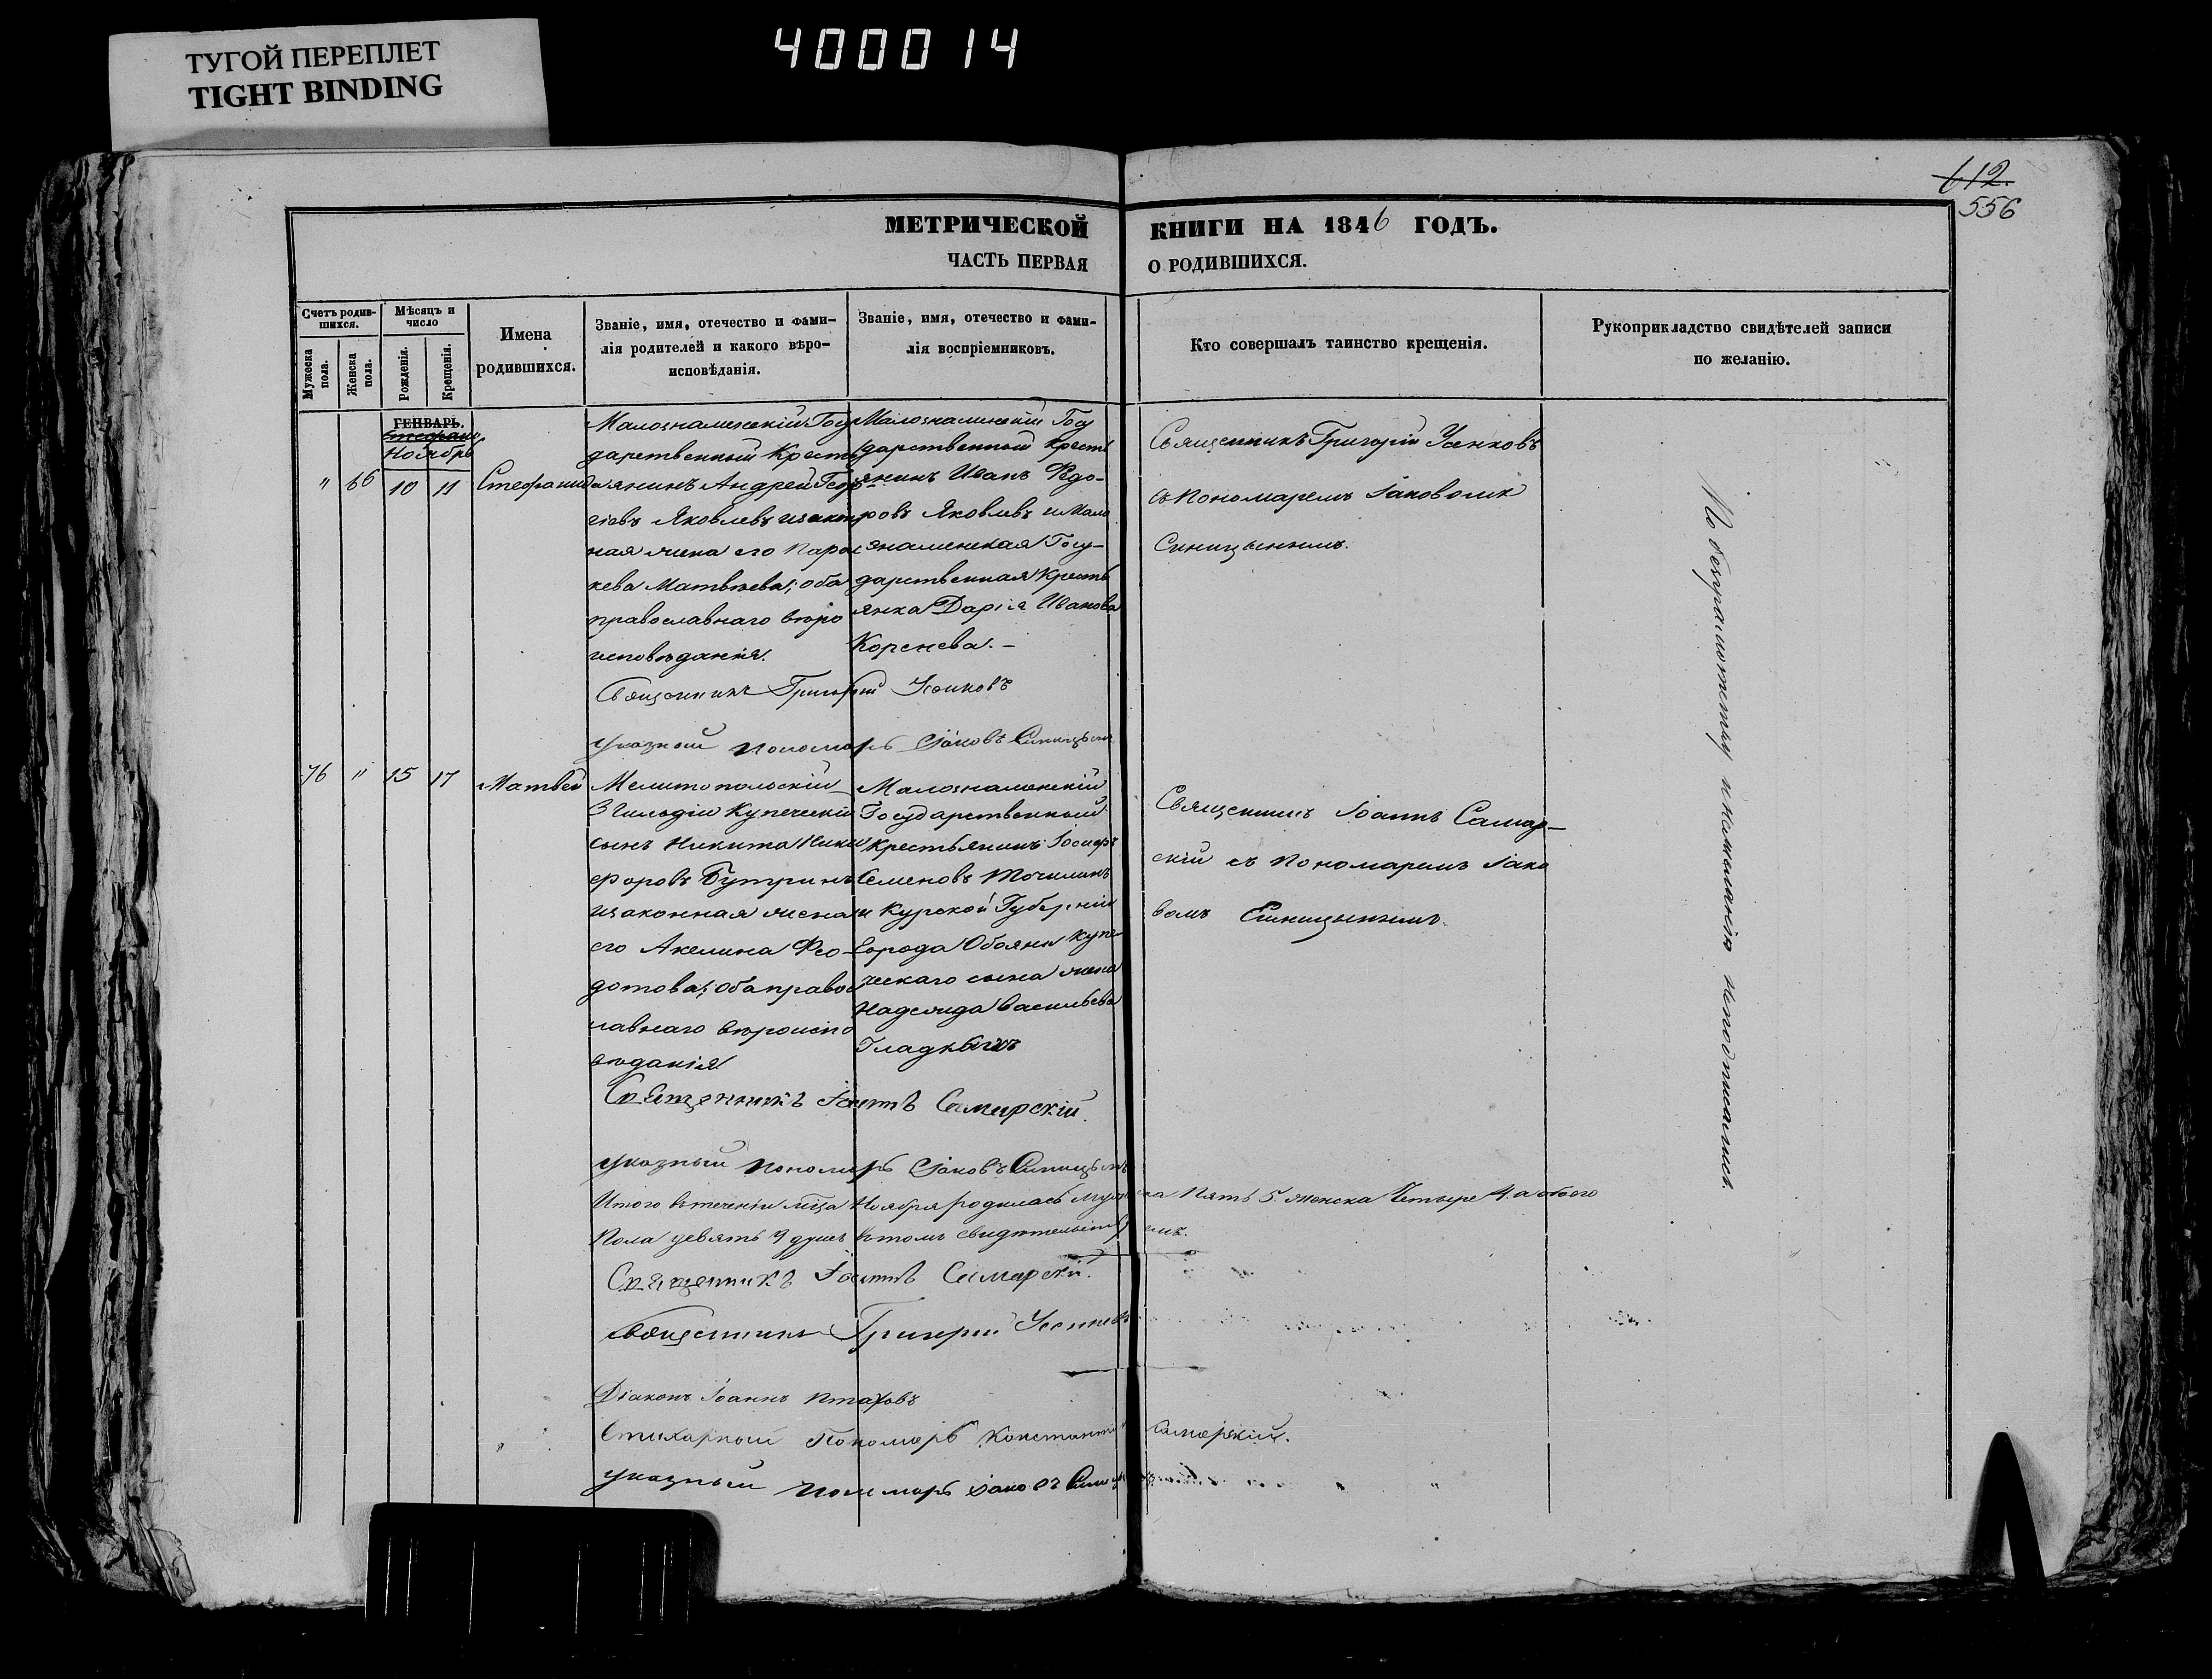 ТУГОЙ ПЕРЕПЛЕТ
TIGHT BINDING
400014
612.
556
МЕТРИЧЕСКОЙ КНИГИ НА 1846 ГОДЪ.
ЧАСТЬ ПЕРВАЯ О РОДИВШИХСЯ.
Счетъ родив-
шихся.
Мужеска
пола.
Женска
пола.
Мѣсяцъ и
число
Рожденія.
Крещенія.
Имена
родившихся.
Званіе, имя, отечество и фами-
лія родителей и какого вѣро-
исповѣданія.
Званіе, имя, отечество и фами-
лія воспріемниковъ.
Кто совершалъ таинство крещенія.
Рукоприкладство свидѣтелей записи
по желанію.
ГЕНВАРЬ.
Ноябрь
" 66 10 11
Стефанида
Малознаменскій Госу
дарственный Кресть
янинъ Андрей Геор
гіевъ Яковлевъ изакон
ная жена его Парас
кева Матвѣева; оба
православнаго вѣро
исповѣданія.
Малознаменскій Госу
дарственный Кресть
янинъ Иванъ Федо-
ровъ Яковлевъ и Мало
знаменская Госу-
дарственная Кресть
янка Дарія Иванова
Коренева.-
Священникъ Григорій Усенковъ
съ Пономаремъ Іаковомъ
Синицынымъ.
Священникъ Григорій Усенковъ
Указный пономарь Іаковъ Синицынъ
76 " 15 17
Матвей
Мелитопольскій
3 Гильдіи Купеческій
сынъ Никита Ники
форовъ Бутринъ
изаконная жена
его Акелина Фео-
дотова; оба правос
лавнаго вѣроиспо
вѣданія
Малознаменскій
Государственный
Крестьянинъ Іосифъ
Семеновъ Точилинъ
и Курской Губерніи
Города Обояни купе
ческаго сына жена
Надежда Васильева
Гладкихъ
Священникъ Іоаннъ Самар-
скій съ Пономаремъ Іако
вомъ Синицынымъ.
Священникъ Іоаннъ Самарскій.
Указный пономарь Іаковъ Синицынъ
Итого втеченіи мѣсяца Ноября родилось мужеска Пять 5. женска Четыре 4. а обоего
Пола девять 9 душъ Втомъ свидѣтельствуемъ.
Священникъ Іоаннъ Самарскій.
Священникъ Григорій Усенковъ
Діаконъ Іоаннъ Птаховъ
Стихарный Пономарь Константинъ Самарскій.
Указный пономарь Іаковъ Синицынъ
По безграмотству и нежеланію неподписались.